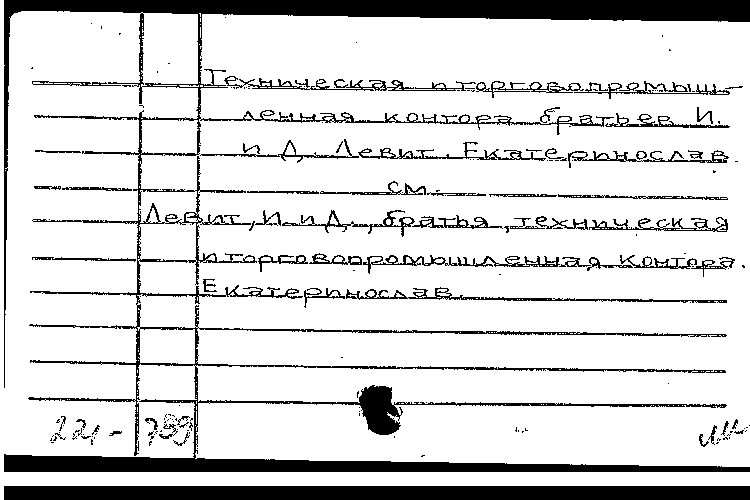 Техническая и торговопромыш-
ленная контора братьев И.
и Д. Левит. Екатеринослав.
см.
Левит, И. и Д., братья, техническая
и торговопромышленная контора.
Екатеринослав.
221- 739